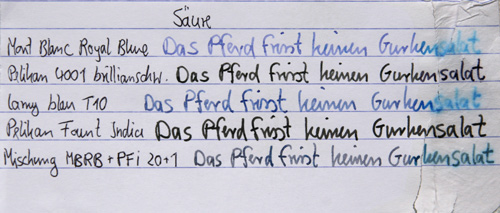 Säure
Mont Blanc Royal Blue Das Pferd frisst keinen Gurkensalat
Pelikan 4001 brilliantschw. Das Pferd frisst keinen Gurkensalat
Lamy blau T10 Das Pferd frisst keinen Gurkensalat
Pelikan Fount India Das Pferd frisst keinen Gurkensalat
Mischung MBRB + PFi 20+1 Das Pferd frisst keinen Gurkensalat